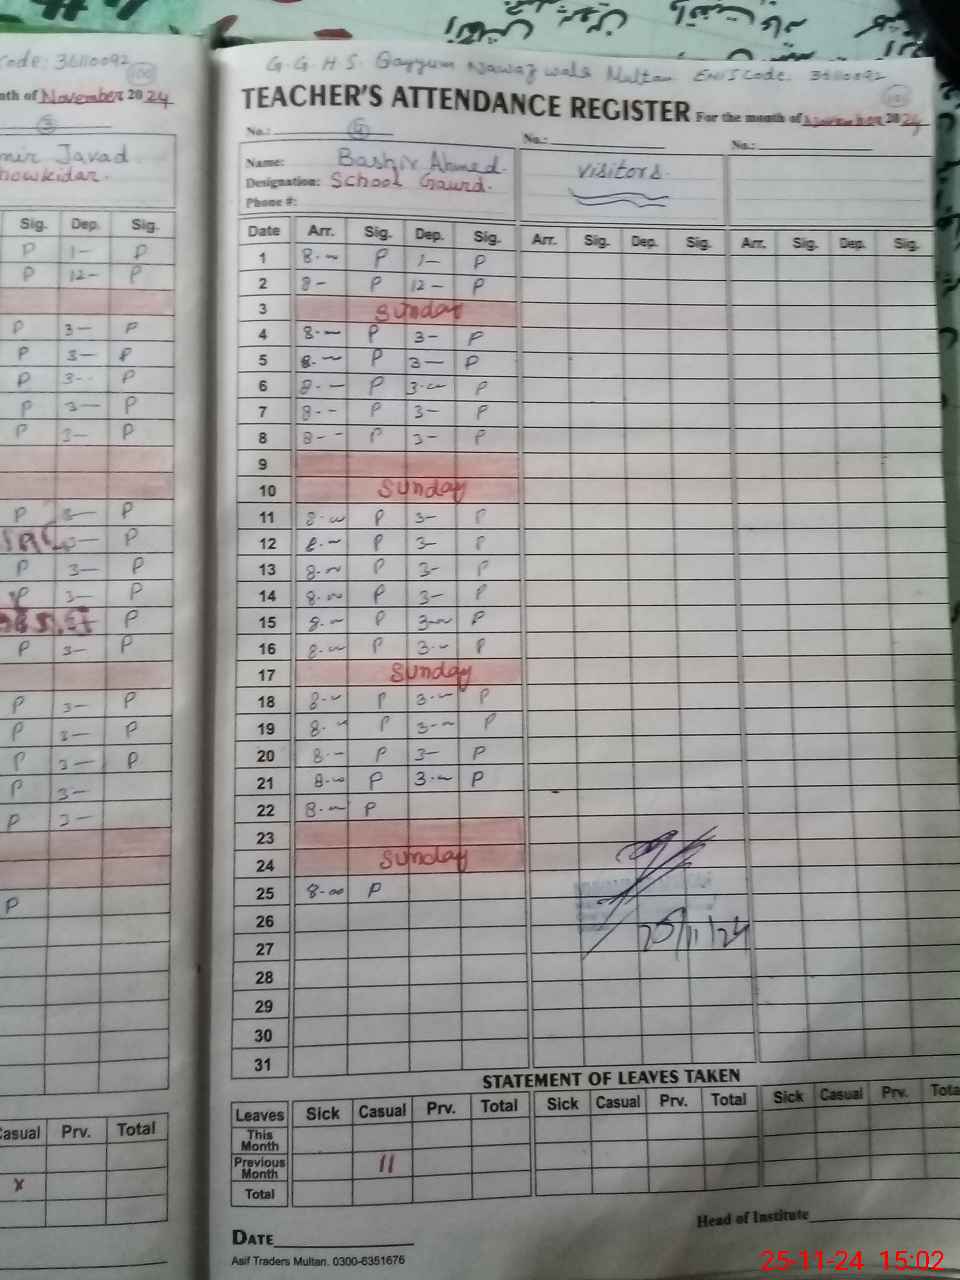 Code: 36110092
November 2024
mir Javad
howkidar.
Sig. Dep. Sig.
P 1- P
P 12- P
P 3- P
P 3- P
P 3- P
P 3- P
P 3- P
P 3- P
P
P 3- P
P 3- P
P
P 3- P
P 3- P
P 3- P
P 3- P
P 3-
P 3-
P
Casual Prv. Total
x
G.G.H.S. Qayyum Nawaz wala Multan EMIS Code. 36110092
TEACHER'S ATTENDANCE REGISTER For the month of November 2024
No.: 5 No.: No.:
Name: Bashir Ahmed. visitors.
Designation: School Gaurd.
Phone #:
Date Arr. Sig. Dep. Sig. Arr. Sig. Dep. Sig. Arr. Sig. Dep. Sig.
1 8-00 P 1- P
2 8- P 12- P
3 Sunday
4 8-00 P 3- P
5 8-00 P 3- P
6 8-- P 3-00 P
7 8-- P 3- P
8 8-- P 3- P
9
10 Sunday
11 8-00 P 3- P
12 8-00 P 3- P
13 8-00 P 3- P
14 8-00 P 3- P
15 8-00 P 3-00 P
16 8-00 P 3-00 P
17 Sunday
18 8-00 P 3-00 P
19 8-00 P 3-00 P
20 8-- P 3- P
21 8-00 P 3-00 P
22 8-00 P
23
24 Sunday
25 8-00 P
26
25/11/24
27
28
29
30
31
STATEMENT OF LEAVES TAKEN
Leaves Sick Casual Prv. Total Sick Casual Prv. Total Sick Casual Prv. Tota
This Month
Previous Month 11
Total
DATE
Head of Institute
Asif Traders Multan. 0300-6351676
25-11-24 15:02